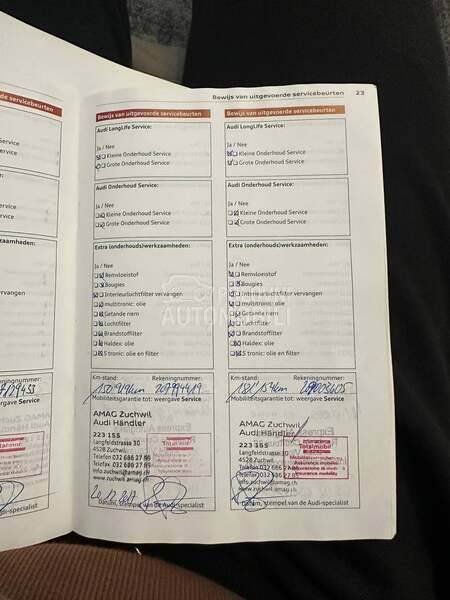 Bewijs van uitgevoerde servicebeurten 23
de servicebeurten
Service
Service
kzaamheden:
vervangen
Service
Bewijs van uitgevoerde servicebeurten
Audi LongLife Service:
Ja / Nee
Kleine Onderhoud Service
Grote Onderhoud Service
Audi Onderhoud Service
Ja / Nee
Kleine Onderhoud Service
Grote Onderhoud Service
Extra (onderhouds)werkzaamheden:
Ja / Nee
Remvloeistof
Bougies
Interieurluchtfilter vervangen
multitronic: olie
Getande riem
Luchtfilter
Brandstoffilter
Haldex: olie
S tronic: olie en filter
Km-stand: Rekeningnummer:
Mobiliteitsgarantie tot: weergave Service
AMAG Zuchwil
Audi Händler
223 155
Langfeldstrasse 30
4528 Zuchwil
Telefon 032 686 27
Telefax 032 686 27
info.zuchwil@amag.ch
www.zuchwil.amag.ch
Datum, stempel van de Audi-specialist
Bewijs van uitgevoerde servicebeurten
Audi LongLife Service:
Ja / Nee
Kleine Onderhoud Service
Grote Onderhoud Service
Audi Onderhoud Service
Ja / Nee
Kleine Onderhoud Service
Grote Onderhoud Service
Extra (onderhouds)werkzaamheden:
Ja / Nee
Remvloeistof
Bougies
Interieurluchtfilter vervangen
multitronic: olie
Getande riem
Luchtfilter
Brandstoffilter
Haldex: olie
S tronic: olie en filter
Km-stand: Rekeningnummer:
Mobiliteitsgarantie tot: weergave Service
AMAG Zuchwil
Audi Händler
223 155
Langfeldstrasse 30
4528 Zuchwil
Telefon 032 686
Telefax 032 686
info.zuchwil@amag.ch
www.zuchwil.amag.ch
Totalmobil
Mobilitätsversicherung
Assurance mobilité
Datum, stempel van de Audi-specialist